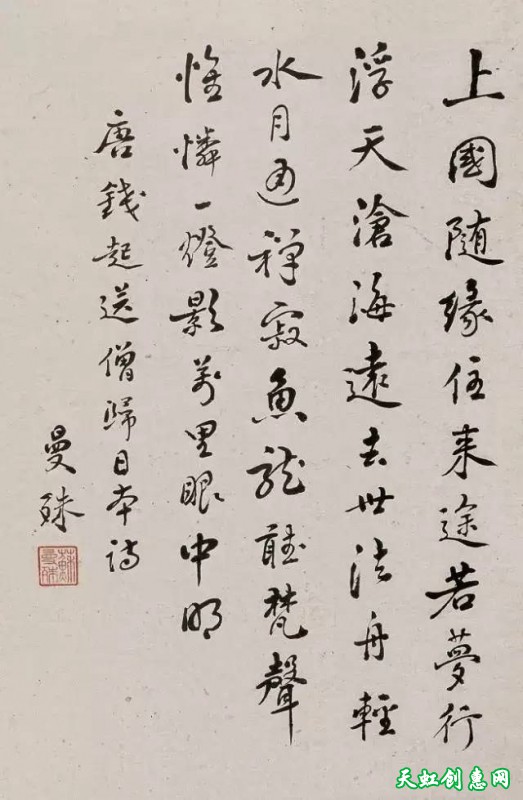 上國随緣住来途若夢行
浮天滄海遠去世法舟輕
水月通禅寂魚龍聴梵聲
惟憐一燈影萬里眼中明
唐錢起送僧歸日本詩
曼殊
蘇曼殊
天虹创惠网